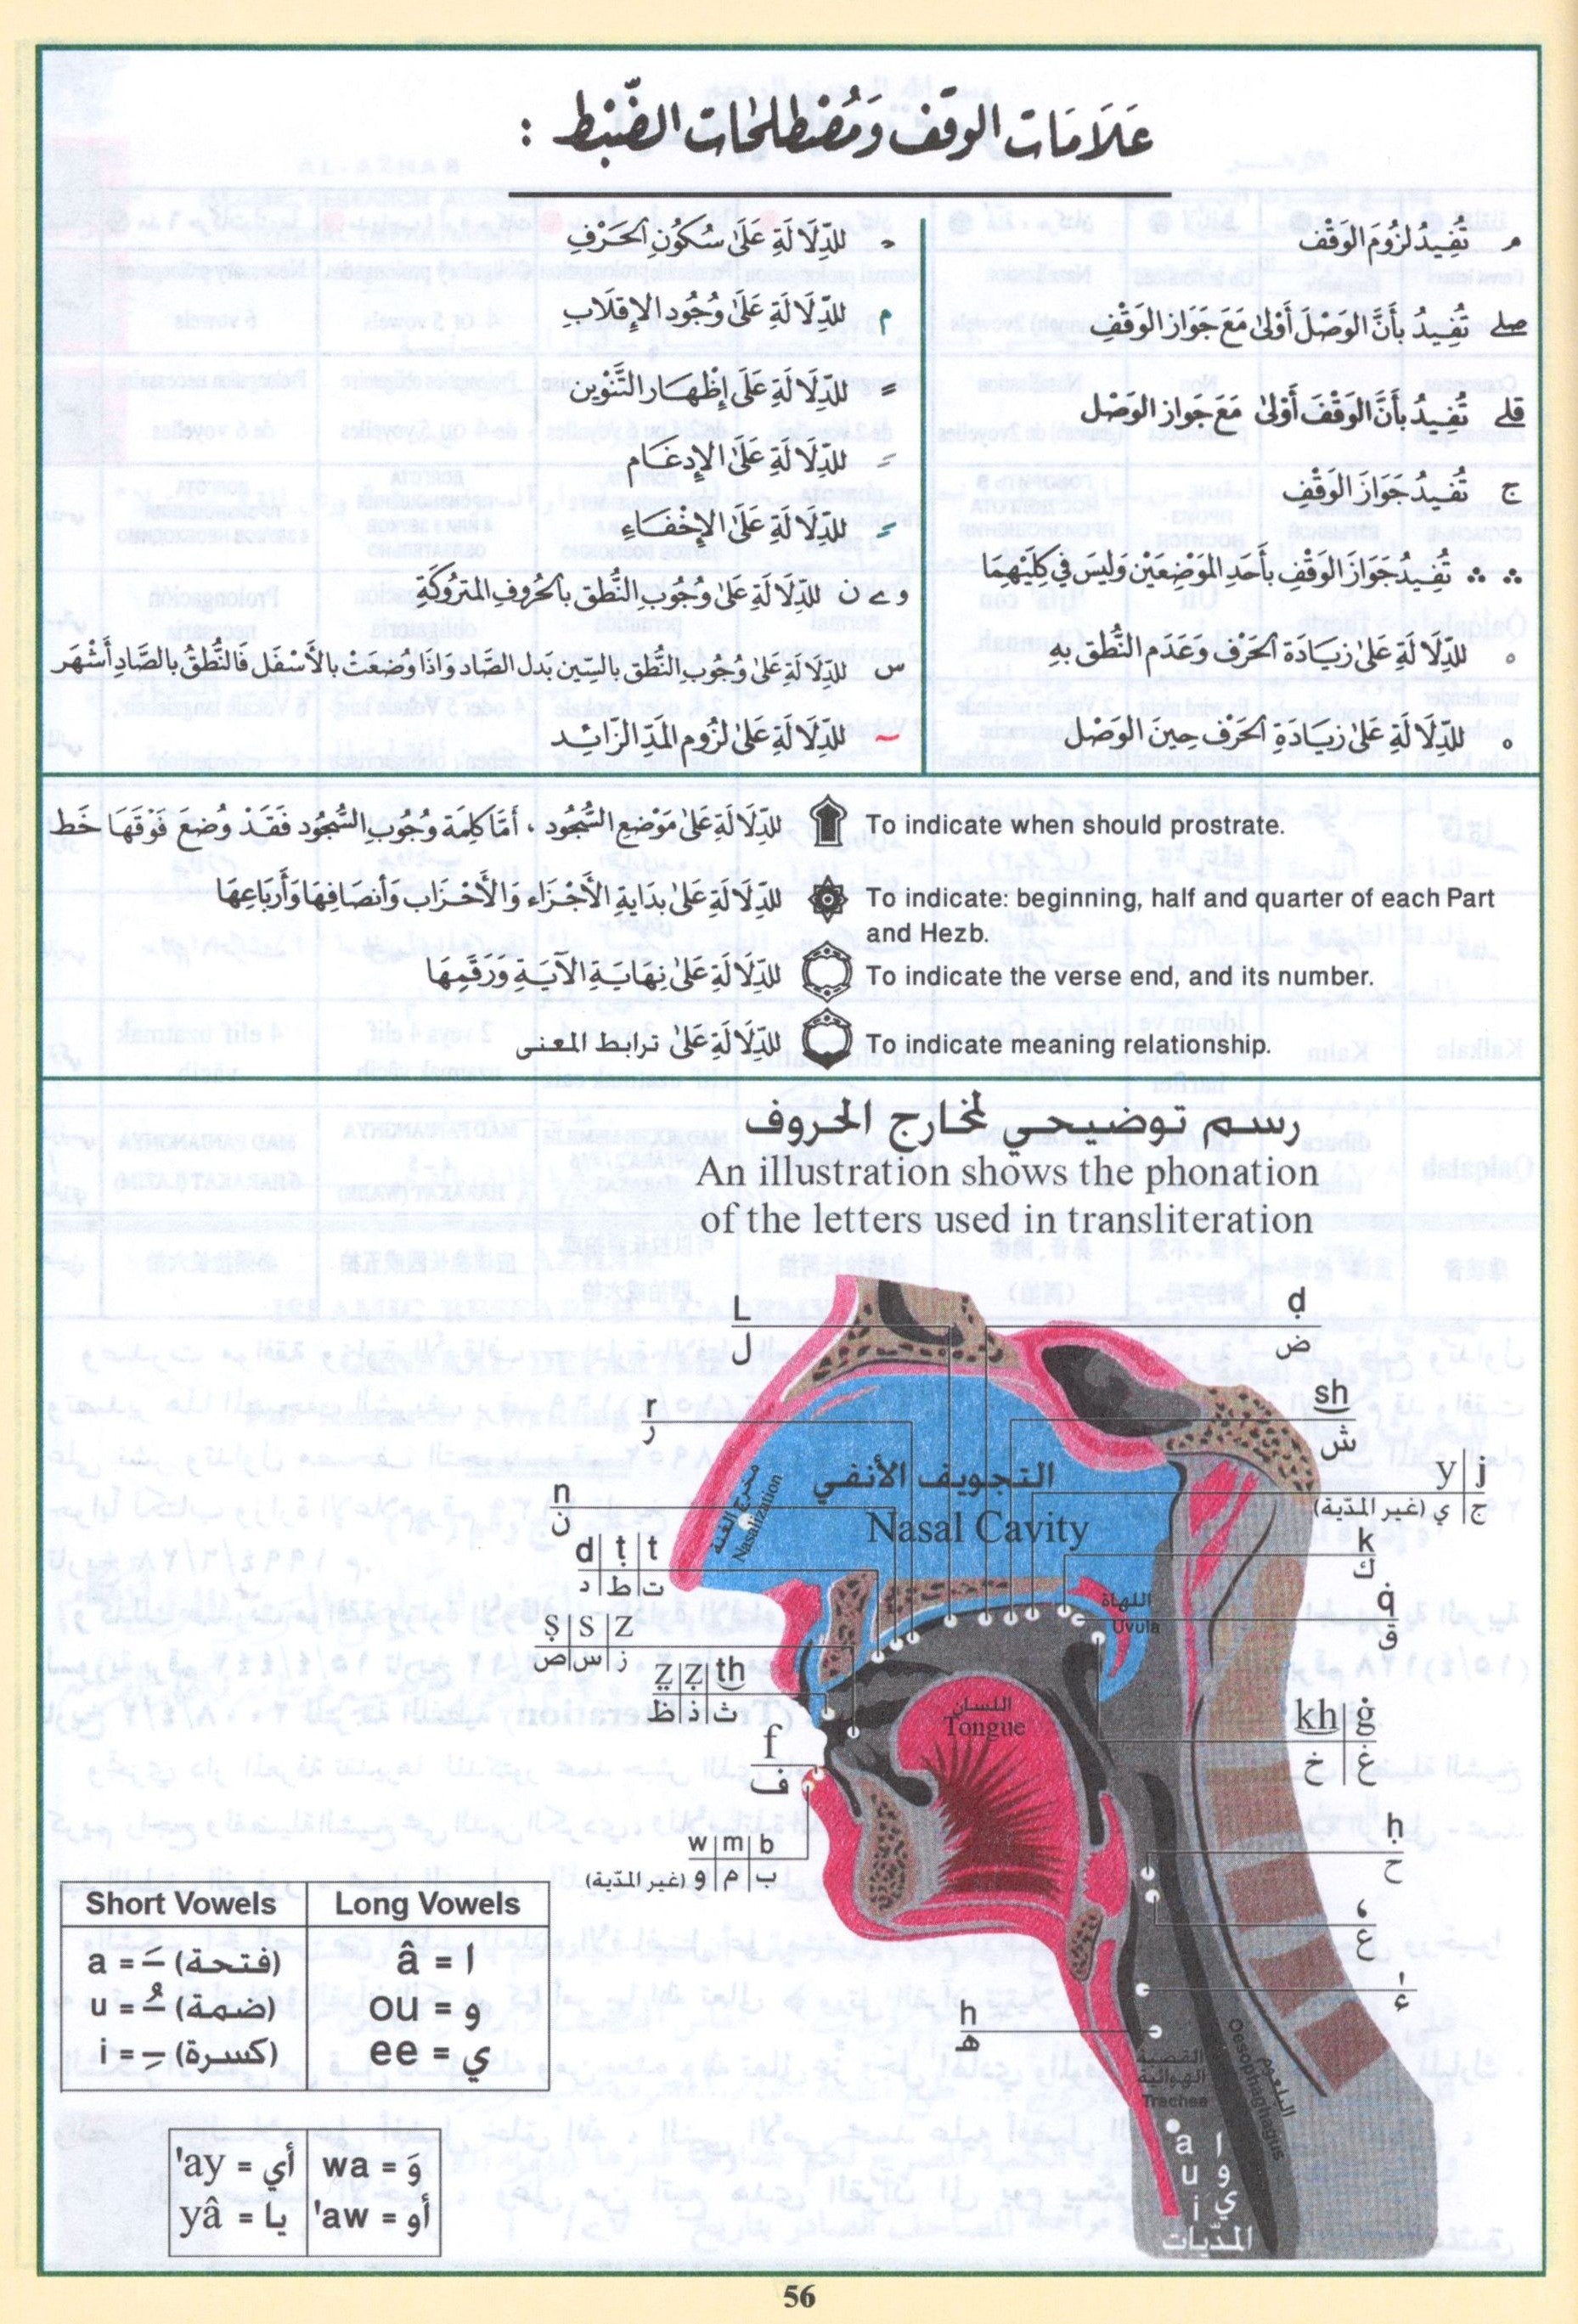 عَلَامَات الوَقف وَمُصْطَلحَات الضَّبْط :
مـ تُفِيدُ لزُومَ الوَقْف
صلے تُفِيدُ بأَنَّ الوَصْل أَوْلىٰ مَعَ جَوَاز الوَقْفِ
قلے تُفِيدُ بأَنَّ الوَقْفَ أَوْلىٰ مَعَ جَوَازِ الوَصْل
ج تُفِيدُ جَوَازَ الوَقْفِ
∴ ∴ تُفِيدُ جوَازَ الوَقْفِ بأَحَدِ المَوْضِعَيْن وَليسَ في كِلَيْهِمَا
للدِّلَالَةِ عَلىٰ زيَادَة الحَرْف وَعَدَم النُّطق بهِ
للدِّلَالَةِ عَلىٰ زيَادَةِ الحَرْف حِينَ الوَصْل
للدِّلَالَةِ عَلىٰ سُكُونِ الحَرْفِ
م للدِّلَالَةِ عَلىٰ وُجُود الإِقلَابِ
للدِّلَالَةِ عَلىٰ إِظْهَار التَّنْوِين
للدِّلَالَةِ عَلىٰ الإِدغَام
للدِّلَالَةِ عَلىٰ الإِخْفَاءِ
و ے ن للدِّلَالَةِ عَلىٰ وُجُوبِ النُّطق بالحُروفِ المَتْرُوكَةِ
س للدِّلَالَةِ عَلىٰ وُجُوبِ النُّطق بالسِّين بَدل الصَّاد وَإذَا وضعَت بالأَسْفَل فَالنُّطقُ بالصَّادِ أَشْهَر
للدِّلَالَةِ عَلىٰ لزُوم المَدِّ الزَائِد
للدِّلَالَةِ عَلىٰ مَوْضِعِ السُّجُود ، أمَّا كلِمَة وُجُوبِ السُّجُود فَقَدْ وُضعَ فَوْقَهَا خَط
To indicate when should prostrate.
للدِّلَالَةِ عَلىٰ بدَايَةِ الأَجْزَاء وَالأَحْزَاب وَأَنصَافِهَا وَأَربَاعِهَا
To indicate: beginning, half and quarter of each Part
and Hezb.
للدِّلَالَةِ عَلىٰ نِهَايَةِ الآيَةِ وَرَقمِهَا
To indicate the verse end, and its number.
للدِّلَالَةِ عَلىٰ ترابط المعنى
To indicate meaning relationship.
رسم توضيحي لمخارج الحروف
An illustration shows the phonation
of the letters used in transliteration
L
ل
ḍ
ض
r
ر
sh
ش
y | j
ي (غير المدّية) | ج
n
ن
التجويف الأنفي
Nasal Cavity
مخرج الغنة
Nasalization
d | ṭ | t
د | ط | ت
k
ك
q̇
ق
اللهاة
Uvula
ṣ | s | z
ص | س | ز
ẓ | ż | th
ظ | ذ | ث
اللسان
Tongue
kh | ġ
خ | غ
f
ف
w | m | b
و (غير المدّية) | م | ب
ḥ
ح
‘
ع
'
ء
h
هـ
القصبة
الهوائية
Trachea
البلعوم
Oesophaghagius
a ا
u و
i ي
المدّيات
Short Vowels | Long Vowels
a = ـَ (فتحة) | â = ا
u = ـُ (ضمة) | ou = و
i = ـِ (كسرة) | ee = ي
'ay = أي | wa = وَ
yâ = يا | 'aw = أو
56